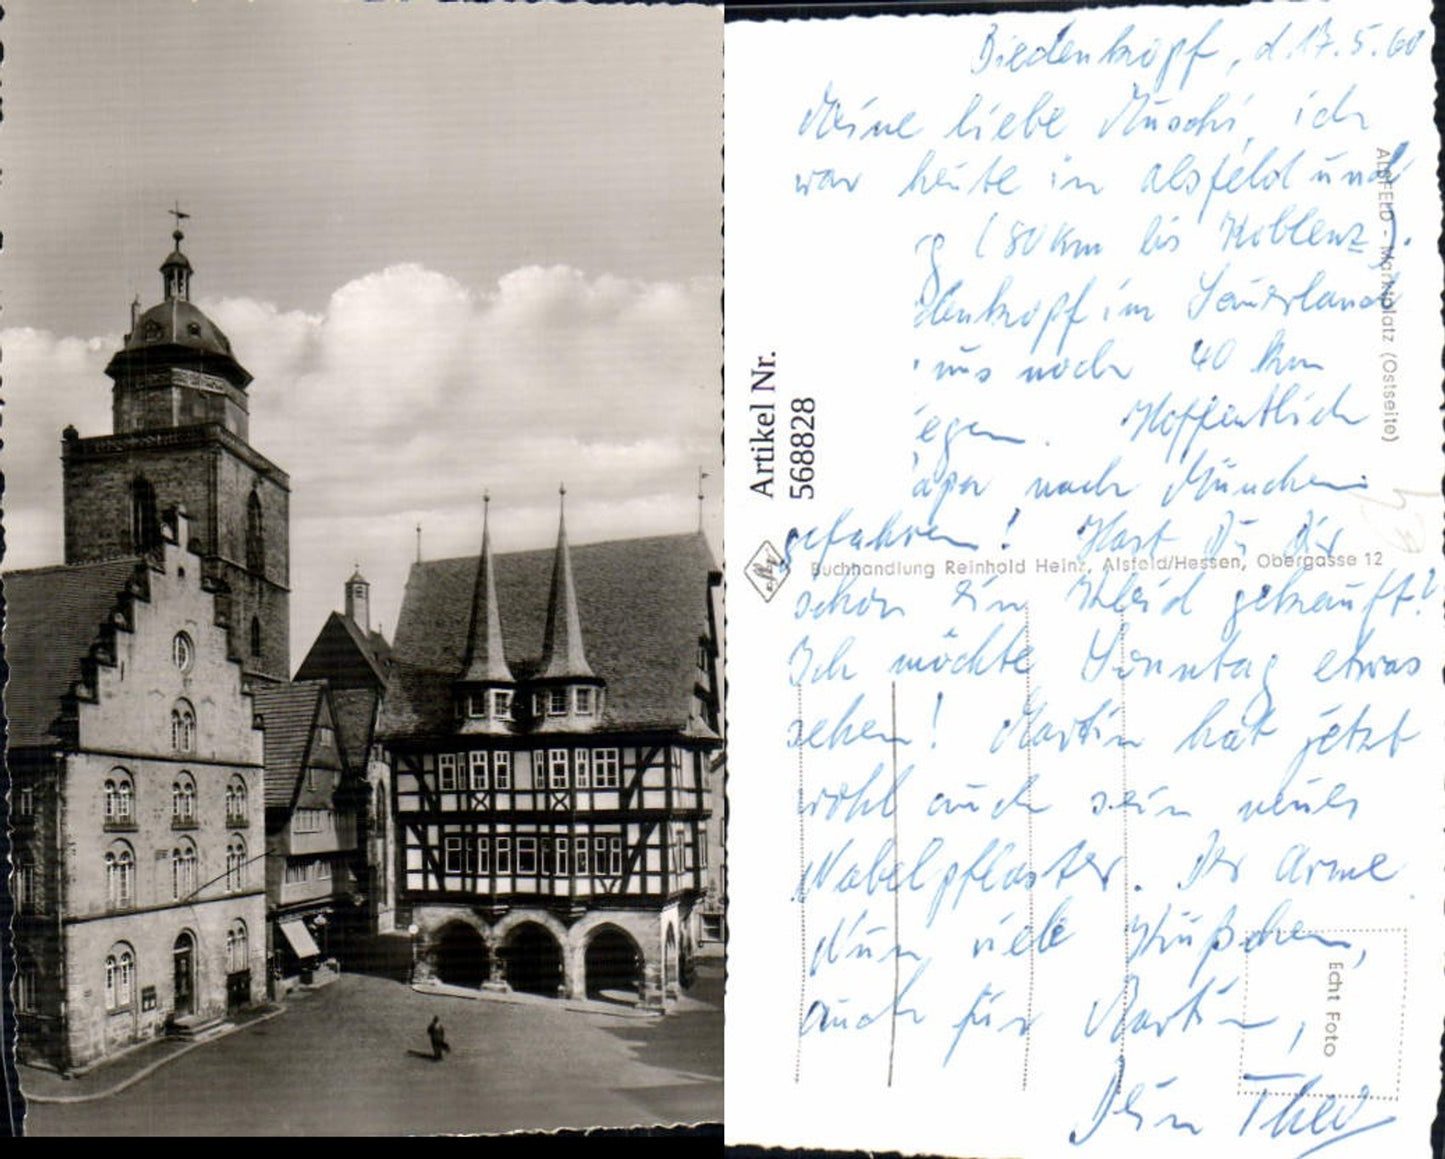 Biedenkopf, d. 17.5.60
Meine liebe Muschi, ich
war heute in Alsfeld und
g (80 km bis Koblenz).
denkopf im Sauerland
uns noch 40 km
egen. Hoffentlich
apa nach München
gefahren! Hast Du Dir
schon ein Kleid gekauft?
Ich möchte Sonntag etwas
sehen! Martin hat jetzt
wohl auch sein neues
Nabelpflaster. Der Arme
Nun viele Küßchen,
auch für Martin,
Dein Theo
ALSFELD - Marktplatz (Ostseite)
Artikel Nr.
568828
Buchhandlung Reinhold Heinz, Alsfeld/Hessen, Obergasse 12
Echt Foto